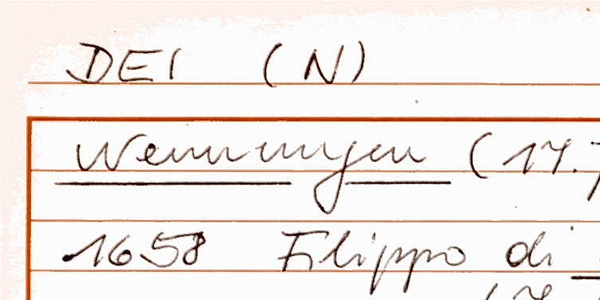 DEI (N)
Wenningen (17.
1658 Filippo di